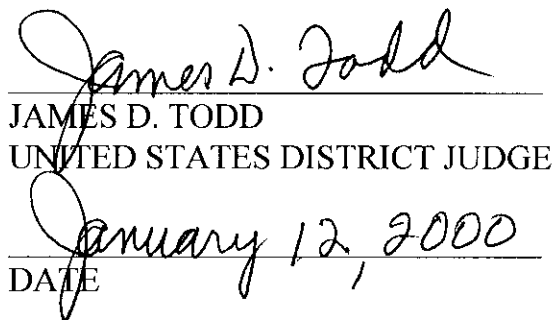 James D. Todd
JAMES D. TODD
UNITED STATES DISTRICT JUDGE
January 12, 2000
DATE